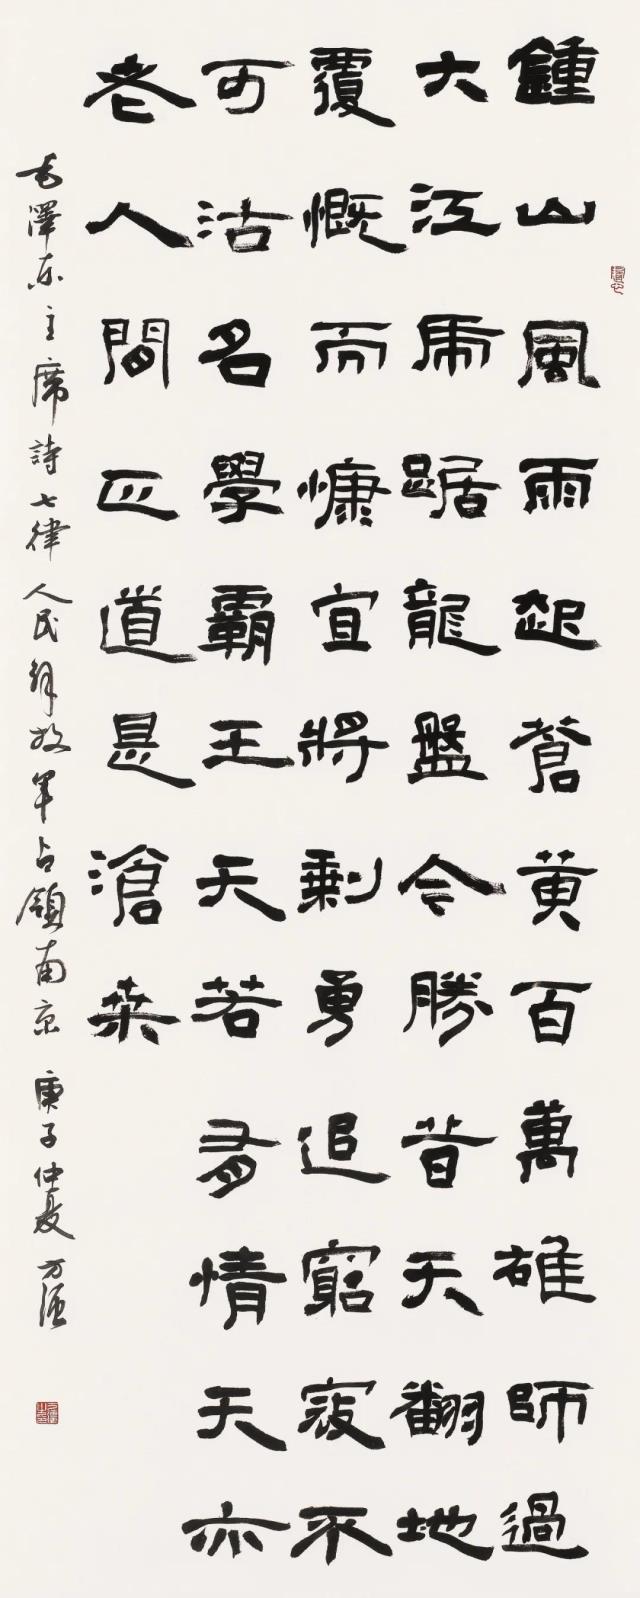 鍾山風雨起蒼黄百萬雄師過
大江虎踞龍盤今勝昔天翻地
覆慨而慷宜將剩勇追窮寇不
可沽名學霸王天若有情天亦
老人間正道是滄桑
毛澤东主席詩七律人民解放軍占領南京 庚子仲夏 方